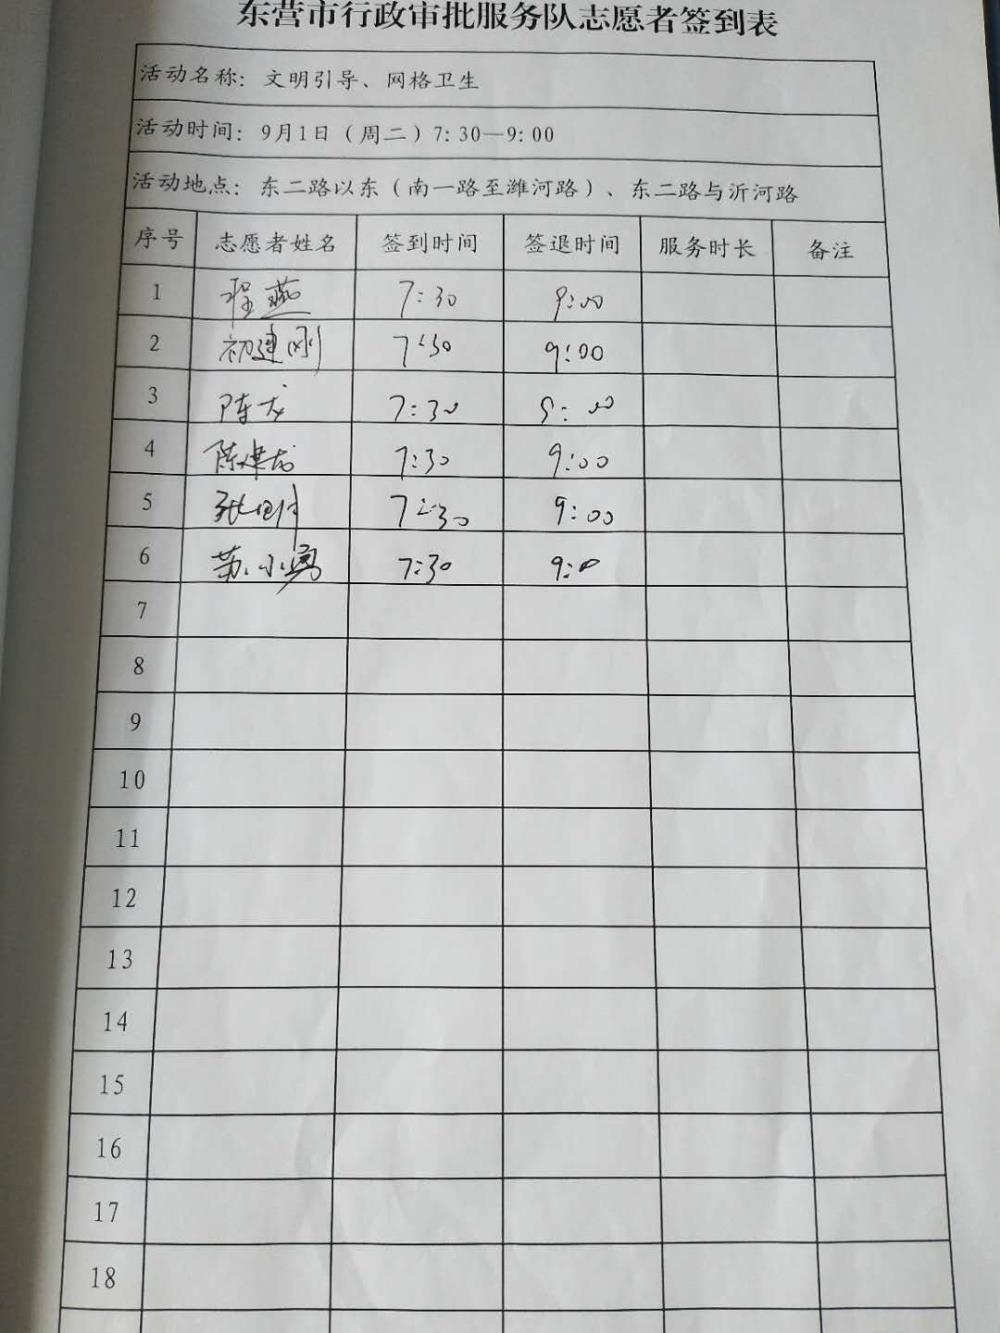 东营市行政审批服务队志愿者签到表
活动名称：文明引导、网格卫生
活动时间：9月1日（周二）7：30—9：00
活动地点：东二路以东（南一路至潍河路）、东二路与沂河路
序号 志愿者姓名 签到时间 签退时间 服务时长 备注
1 程燕 7:30 9:00
2 初建刚 7:30 9:00
3 陈龙 7:30 9:00
4 陈建 7:30 9:00
5 张 7:30 9:00
6 苏小勇 7:30 9:0
7
8
9
10
11
12
13
14
15
16
17
18